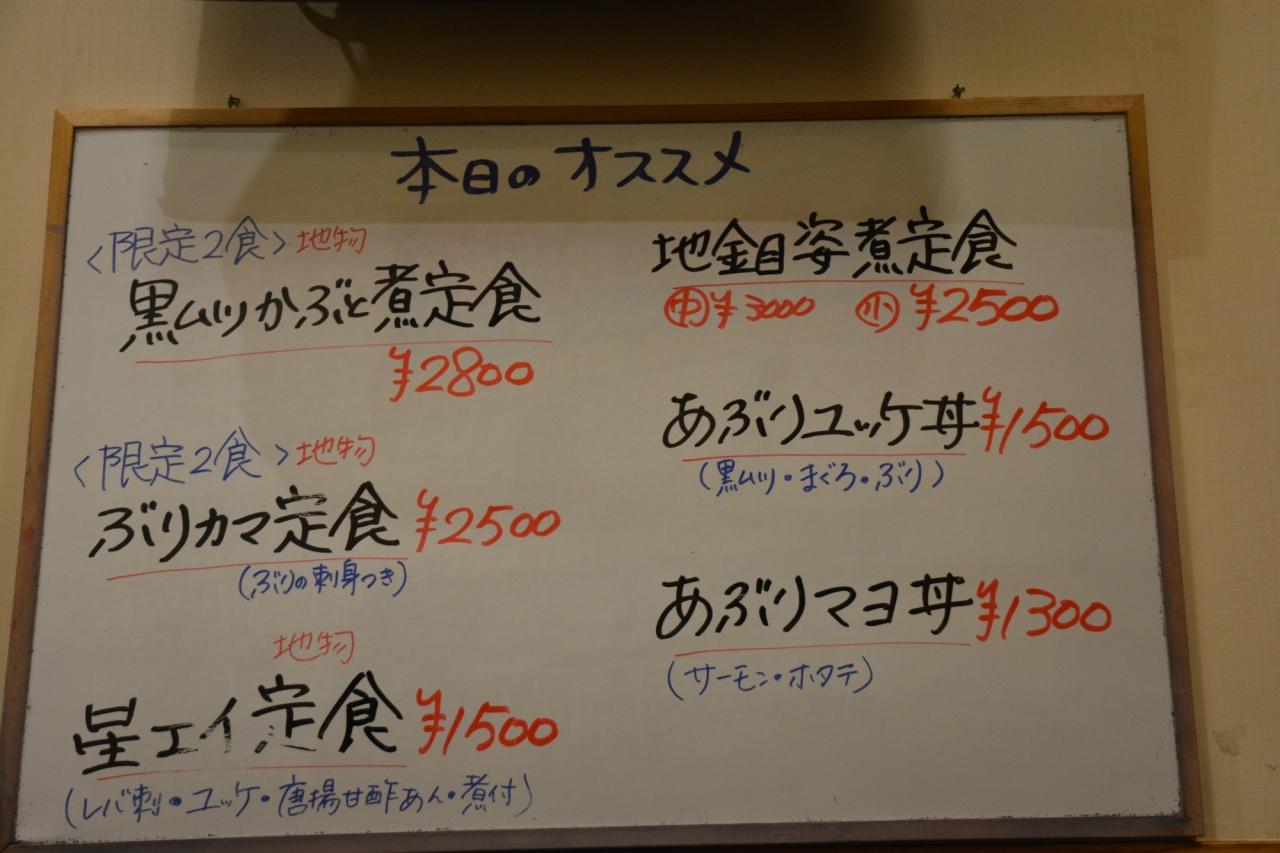 本日のオススメ
<限定2食> 地物
黒ムツかぶと煮定食
¥2800
<限定2食> 地物
ぶりカマ定食 ¥2500
(ぶりの刺身つき)
地物
星エイ定食 ¥1500
(レバ刺・ユッケ・唐揚甘酢あん・煮付)
地金目姿煮定食
中¥3000 小¥2500
あぶりユッケ丼 ¥1500
(黒ムツ・まぐろ・ぶり)
あぶりマヨ丼 ¥1300
(サーモン・ホタテ)